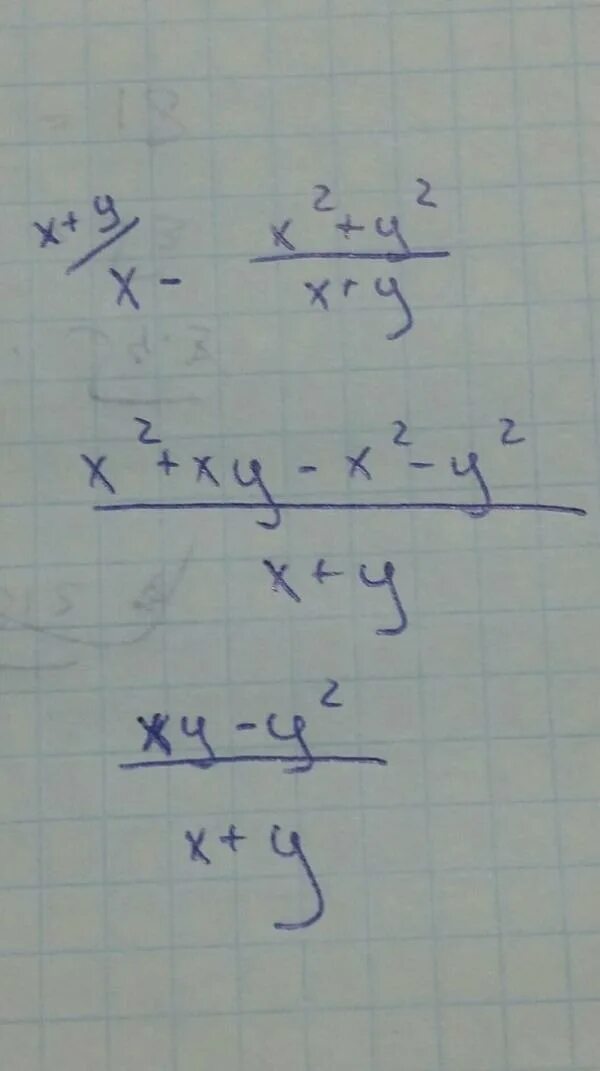 x+y/ x - (x²+y²)/(x+y)
(x²+xy-x²-y²)/(x+y)
(xy-y²)/(x+y)